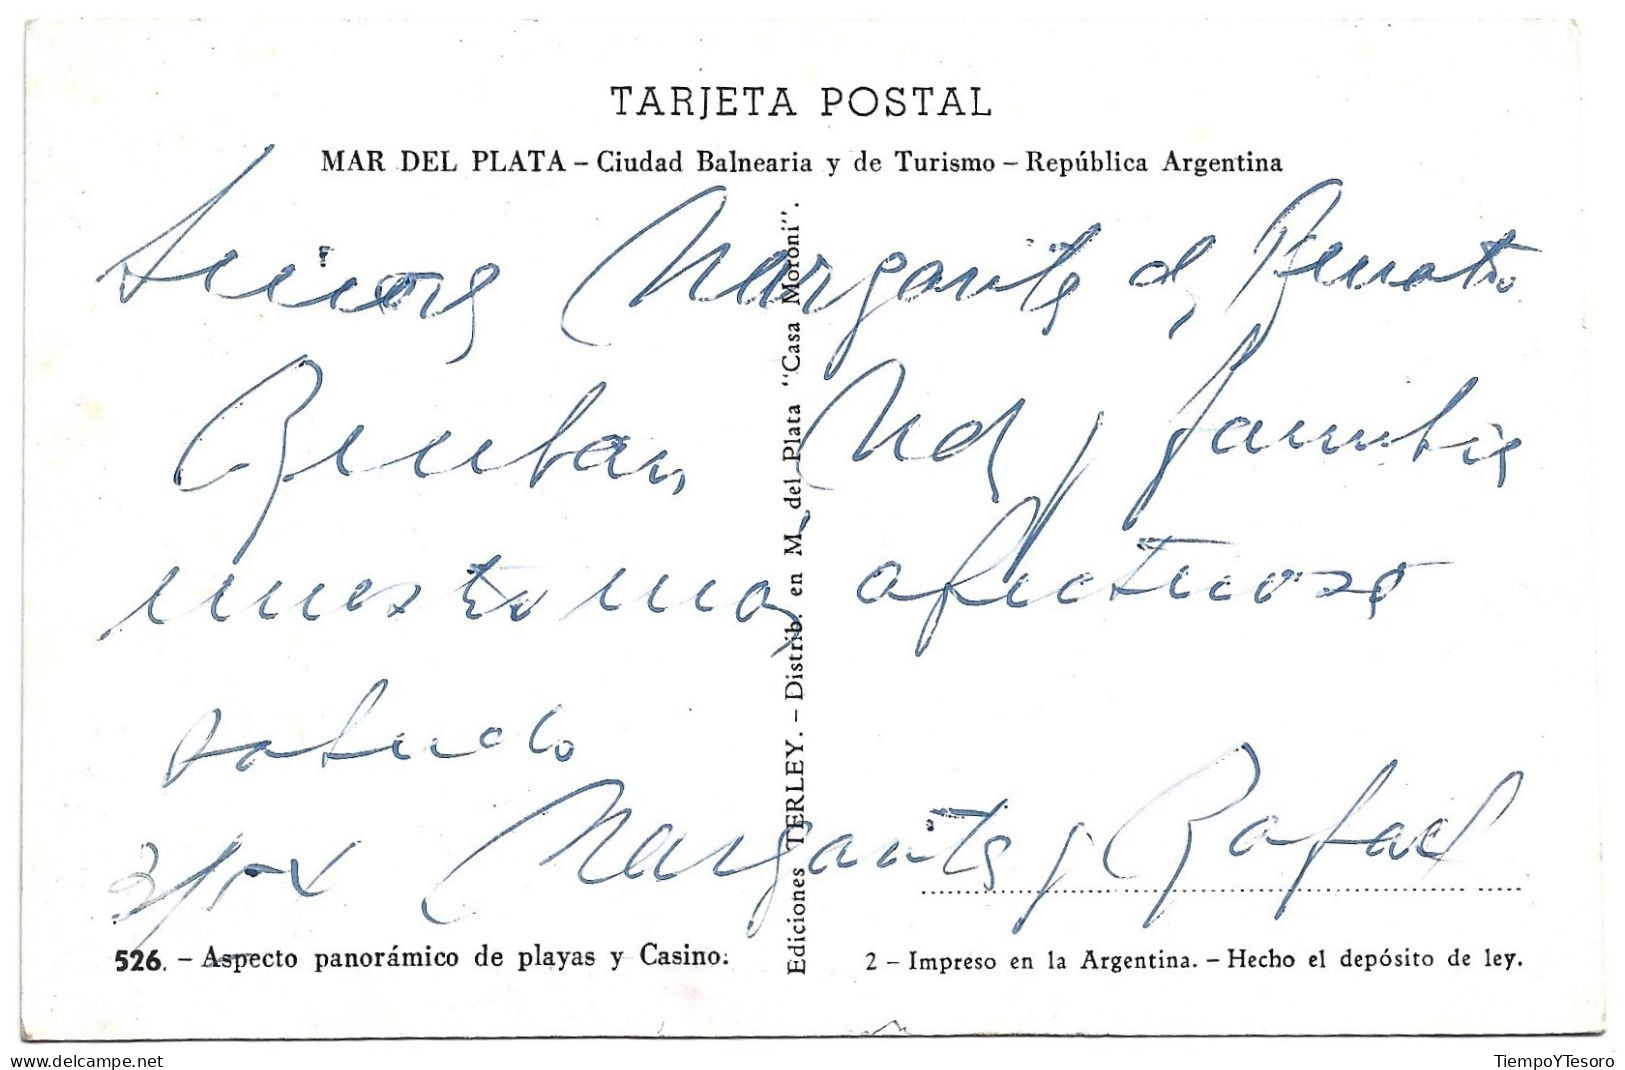 TARJETA POSTAL
MAR DEL PLATA – Ciudad Balnearia y de Turismo – República Argentina
Señora Margarita de
Reciban Ud y familia
nuestro mas afectuoso
saludo
Margarita y Rafael
526. – Aspecto panorámico de playas y Casino.
Ediciones TERLEY. – Distrib. en M. del Plata "Casa Moroni".
2 – Impreso en la Argentina. – Hecho el depósito de ley.
TiempoYTesoro